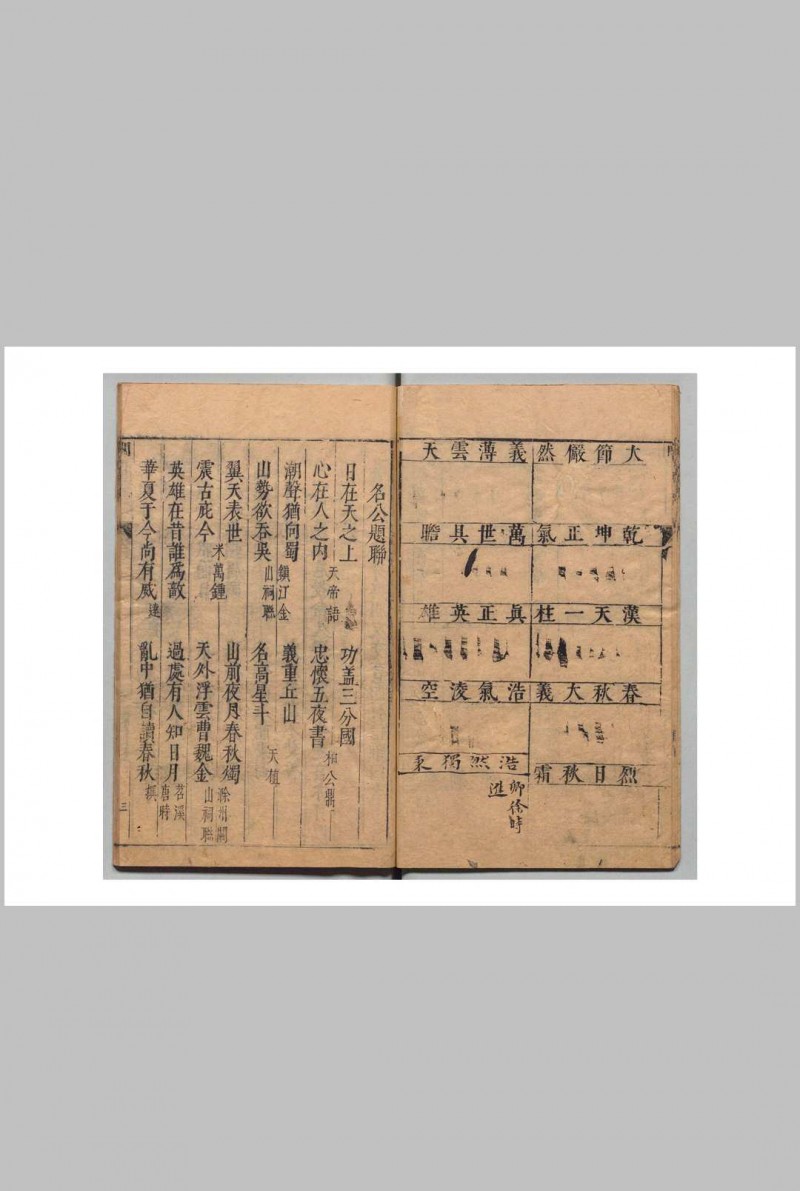 大節儼然
義薄雲天
乾坤正氣
萬世具瞻
漢天一柱
眞正英雄
春秋大義
浩氣凌空
烈日秋霜
浩然獨
卿徐時
進
名公題聯
日在天之上 功盖三分國
心在人之内 天帝語 忠懷五夜書 相公
潮聲猶向蜀 義重丘山
山勢欲吞吳 鎮江金山祠聯 名高星斗 天植
翼天表世 山前夜月春秋燭
震古庇今 米萬鍾 天外浮雲曹魏金 滁州關山祠聯
英雄在昔誰爲敵 過處有人知日月
華夏于今尚有威 達 亂中猶自讀春秋 苕溪唐時撰
三